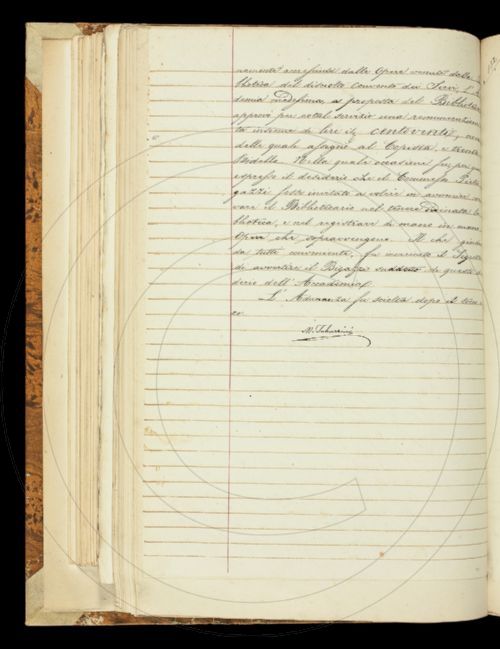 dalle Opere venute dalla
blioteca del disciolto Convento dei Servi, l'
demia medesima a proposta del Bibliotec
approvò per cotal servizio una remunerazione
ta insieme di lire it. centoventi,
delle quali al Copista, e trenta
Bidello. Nella quale occasione fu pu
espresso il desiderio che il Commesso
fosse invitato a volere in avvenire
vare il Bibliotecario nel tenere ordinata la
blioteca, e nel registrare di mano in mano
Opere che sopravvengono. Il che
da tutti fu incaricato il Segret
di avvertire il suddetto di questo
derio dell'Accademia.
L'Adunanza fu sciolta dopo il tocc
co.